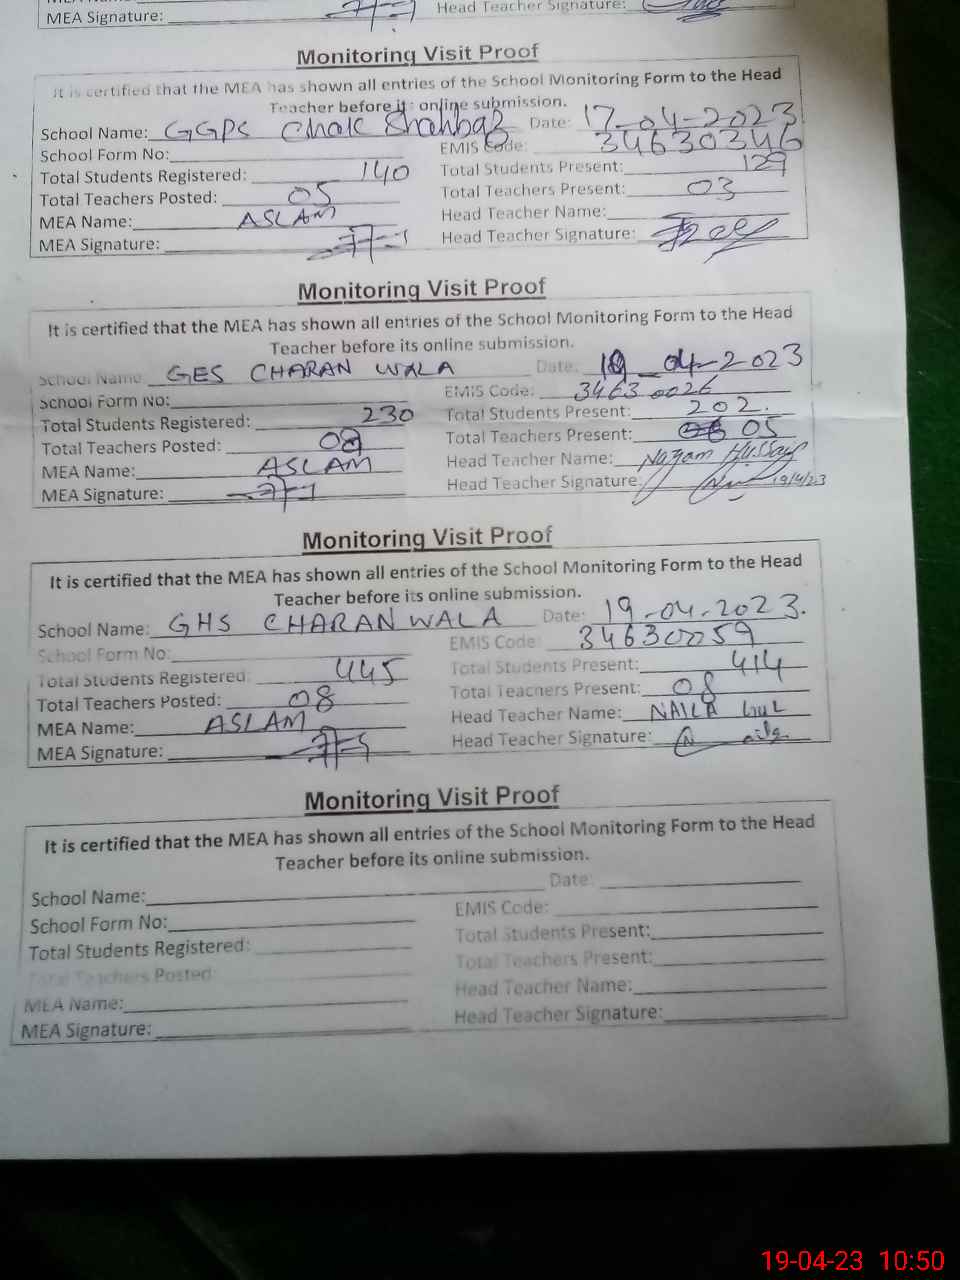 MEA Signature: Head Teacher Signature:
Monitoring Visit Proof
It is certified that the MEA has shown all entries of the School Monitoring Form to the Head
Teacher before its online submission.
School Name: GGPS Chak Shahbaz Date: 17-04-2023
School Form No: EMIS Code: 34630346
Total Students Registered: 140 Total Students Present: 129
Total Teachers Posted: 05 Total Teachers Present: 03
MEA Name: ASLAM Head Teacher Name:
MEA Signature: Head Teacher Signature:
Monitoring Visit Proof
It is certified that the MEA has shown all entries of the School Monitoring Form to the Head
Teacher before its online submission.
School Name GES CHARAN WALA Date: 19-04-2023
School Form No: EMIS Code: 34630026
Total Students Registered: 230 Total Students Present: 202.
Total Teachers Posted: 08 Total Teachers Present: 05
MEA Name: ASLAM Head Teacher Name: Hussain
MEA Signature: Head Teacher Signature: 19/4/23
Monitoring Visit Proof
It is certified that the MEA has shown all entries of the School Monitoring Form to the Head
Teacher before its online submission.
School Name: GHS CHARAN WALA Date: 19-04-2023.
School Form No: EMIS Code: 34630059
Total Students Registered: 445 Total Students Present: 414
Total Teachers Posted: 08 Total Teachers Present: 08
MEA Name: ASLAM Head Teacher Name: NAILA GUL
MEA Signature: Head Teacher Signature:
Monitoring Visit Proof
It is certified that the MEA has shown all entries of the School Monitoring Form to the Head
Teacher before its online submission.
School Name: Date:
School Form No: EMIS Code:
Total Students Registered: Total Students Present:
Total Teachers Posted: Total Teachers Present:
MEA Name: Head Teacher Name:
MEA Signature: Head Teacher Signature:
19-04-23 10:50